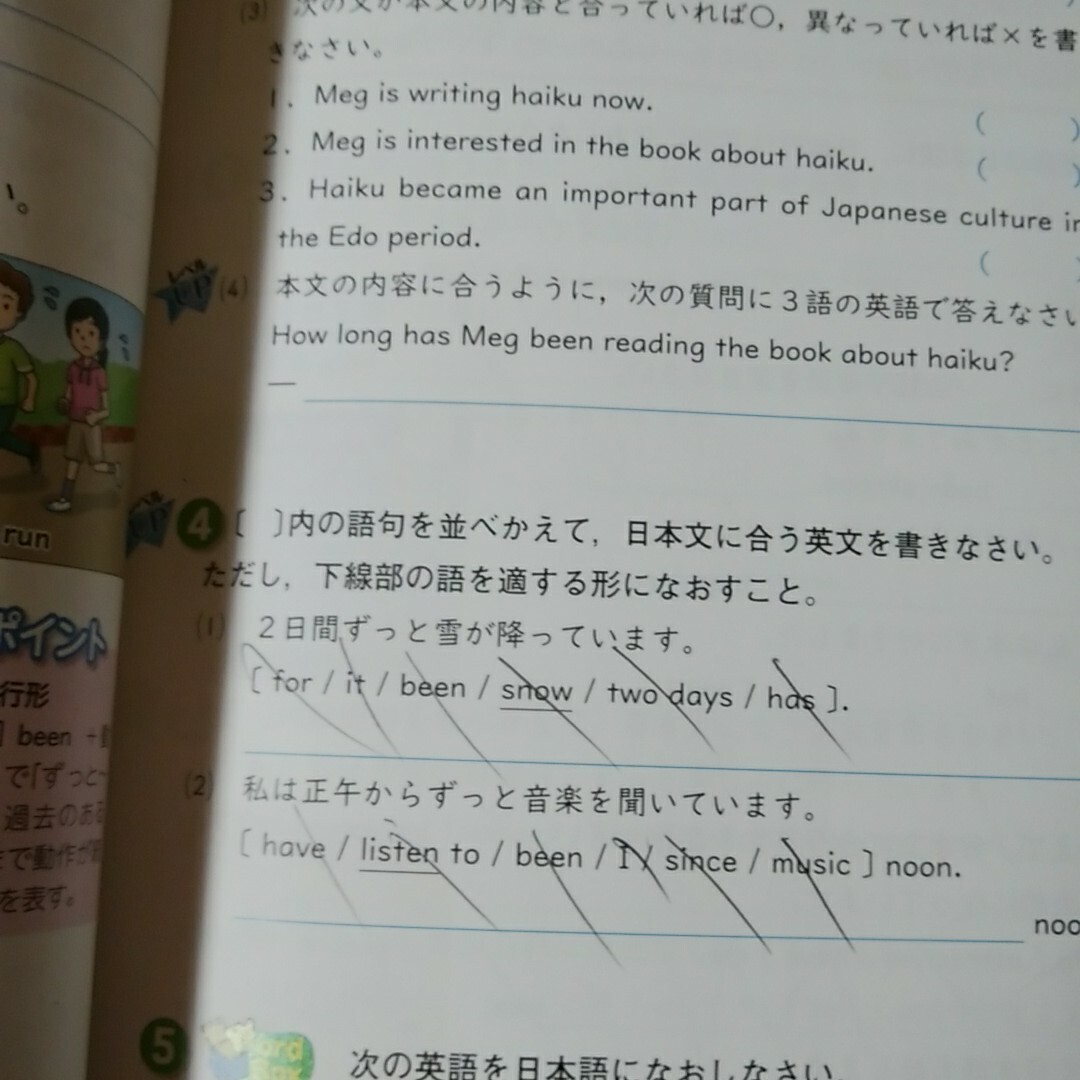 (3) 次の文が本文の内容と合っていれば○，異なっていれば×を書
きなさい。
1. Meg is writing haiku now. ( )
2. Meg is interested in the book about haiku. ( )
3. Haiku became an important part of Japanese culture in
the Edo period. (
(4) 本文の内容に合うように，次の質問に3語の英語で答えなさい
How long has Meg been reading the book about haiku?
—
4 〔 〕内の語句を並べかえて，日本文に合う英文を書きなさい。
ただし，下線部の語を適する形になおすこと。
(1) 2日間ずっと雪が降っています。
〔 for / it / been / snow / two days / has 〕.
(2) 私は正午からずっと音楽を聞いています。
〔 have / listen to / been / I / since / music 〕 noon.
noo
5
次の英語を日本語になおしなさい。
run
ポイント
行形
been +
で「ずっと
過去のある
まで動作が
を表す。